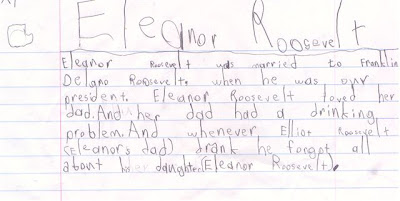 Eleanor Roosevelt
Eleanor Roosevelt was married to Franklin
Delano Roosevelt. when he was our
president. Eleanor Roosevelt loved her
dad. And her dad had a drinking
problem. And whenever Elliot Roosevelt
(Eleanor's dad) drank he forgot all
about her daughter (Eleanor Roosevelt).